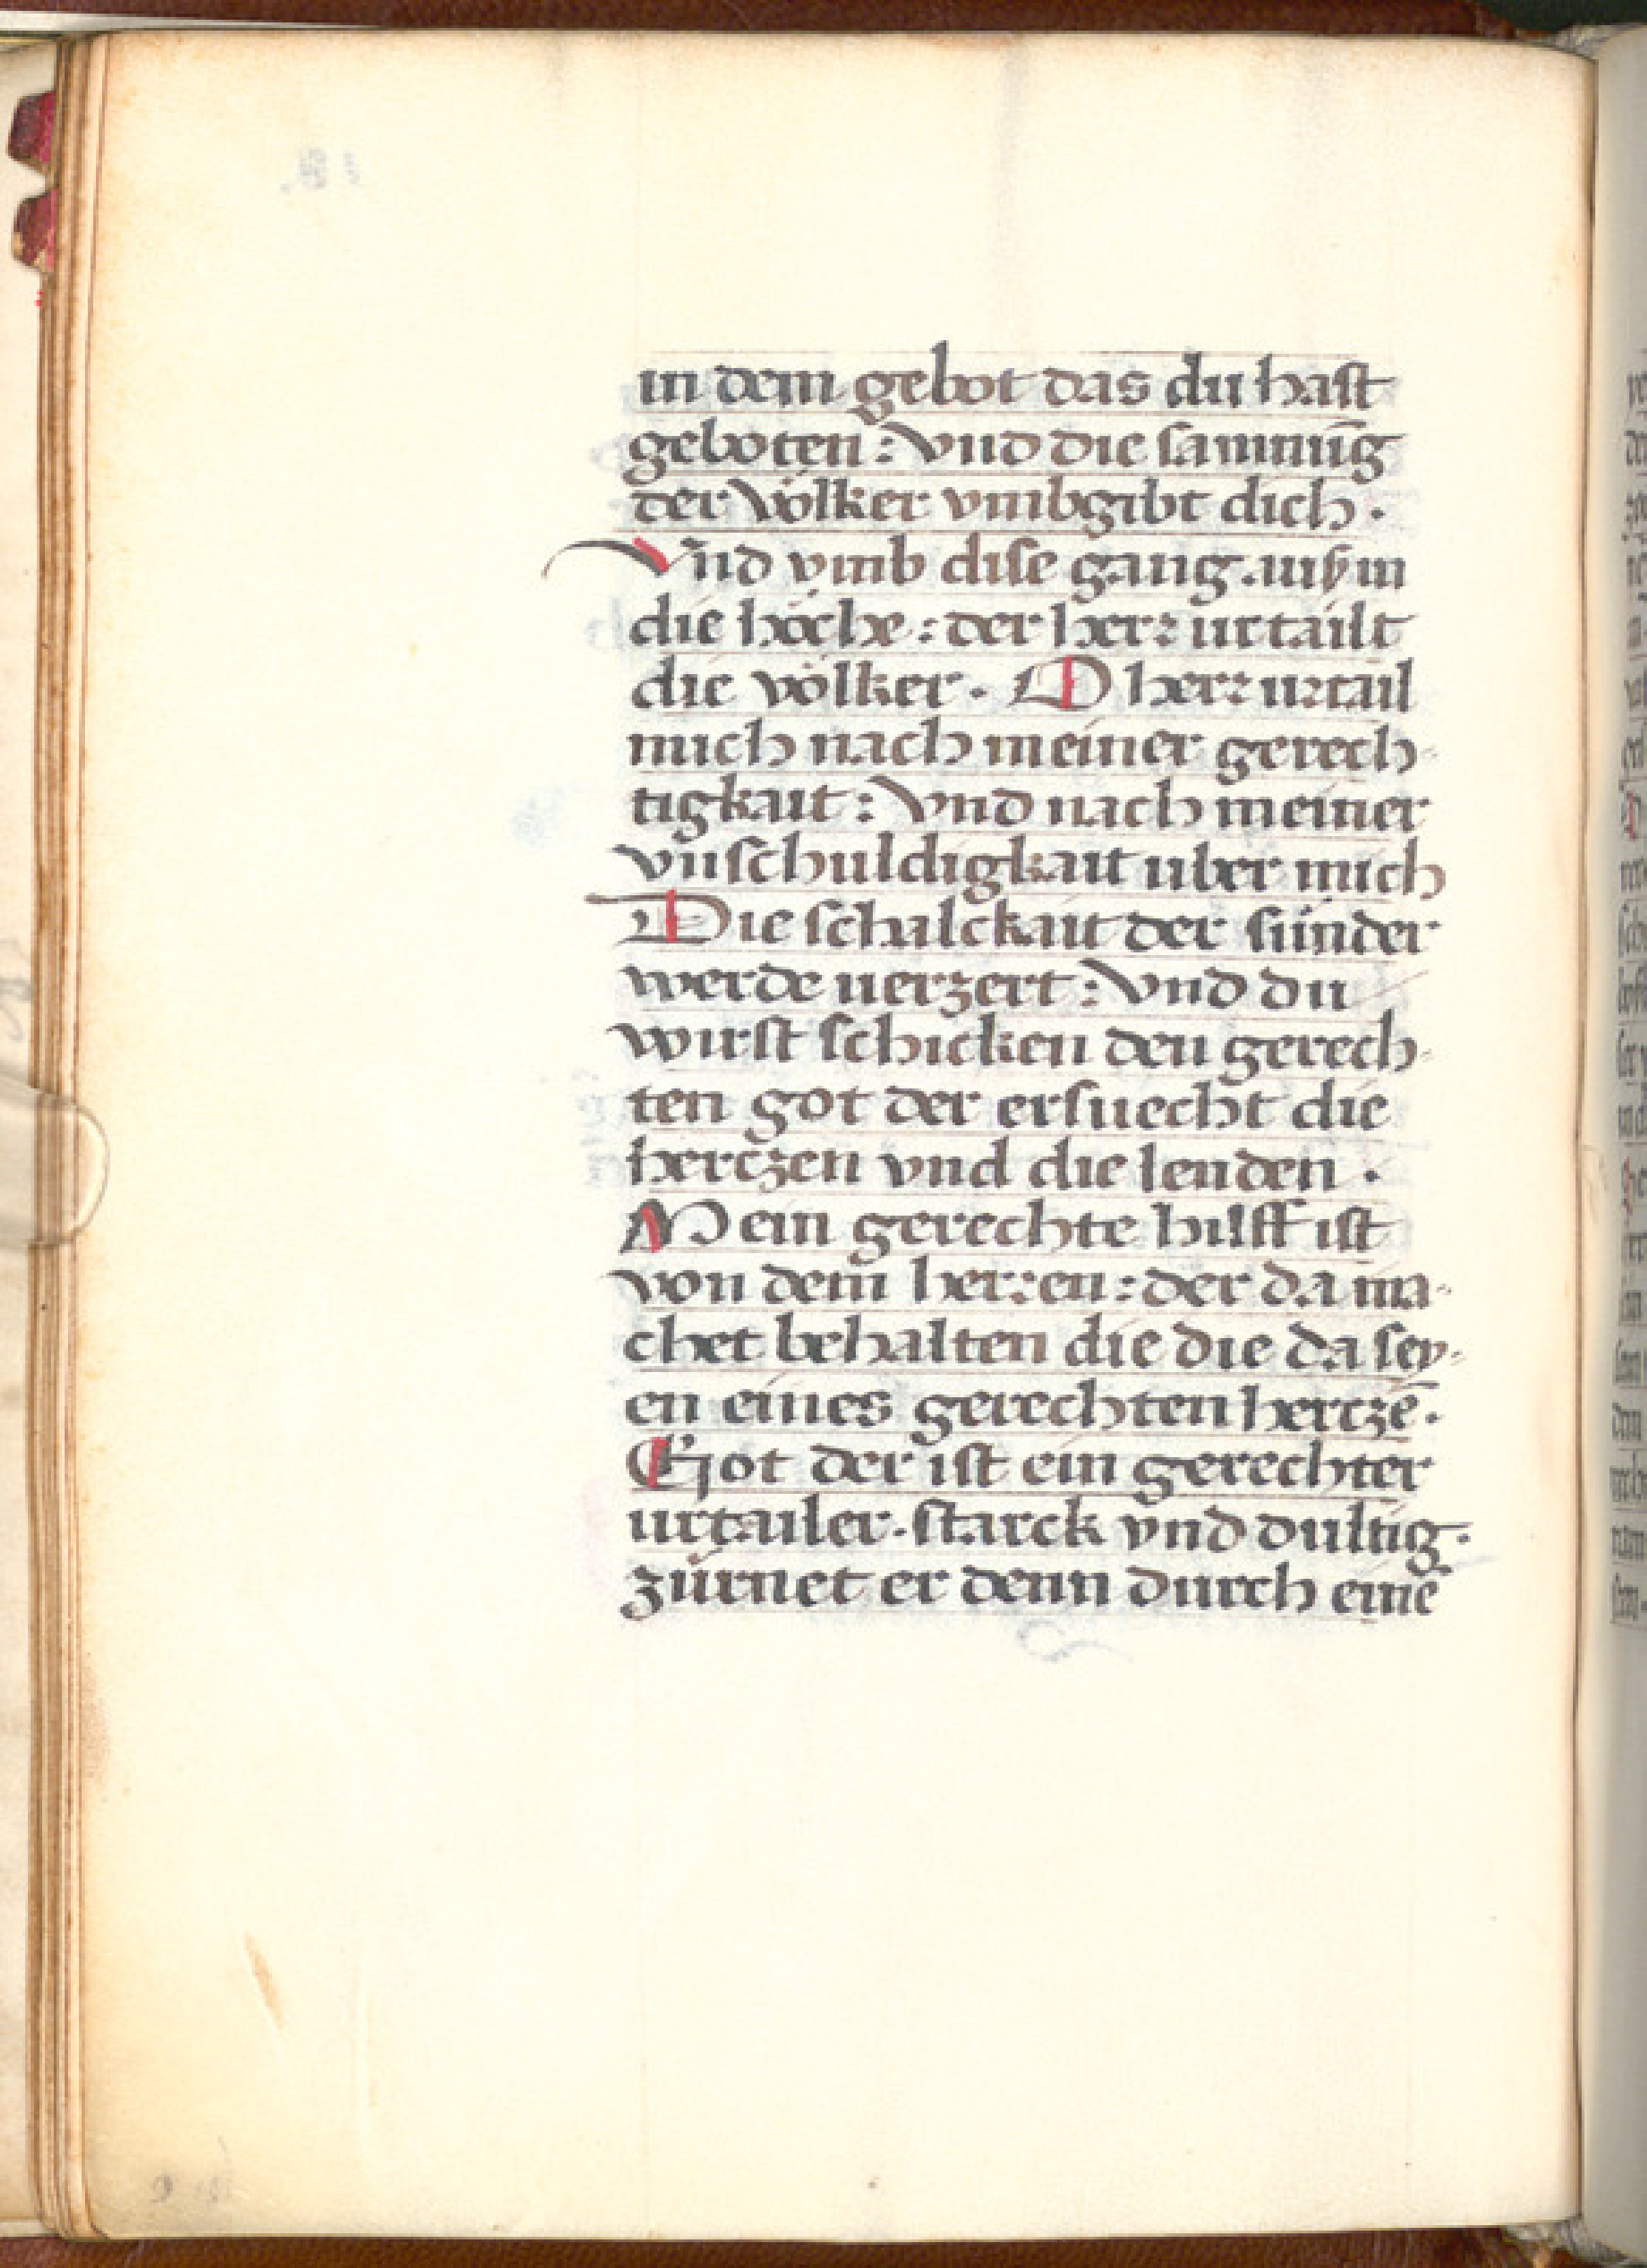 in dem gebot das du hast
geboten: vnd die samnūg
der völker vmbgibt dich.
Vnd vmb dise gang auf in
die höche: der herr urtailt
die völker. O herr urtail
mich nach meiner gerech-
tigkait: vnd nach meiner
vnschuldigkait uber mich
Die schalckait der sünder
werde uerzert: vnd du
wirst schicken den gerech-
ten got der ersuecht die
herczen vnd die lenden.
Mein gerechte hilff ist
von dem herren: der da ma-
chet behalten die die da sey-
en eines gerechten herczē.
Got der ist ein gerechter
urtailer. starck vnd dultig.
zürnet er denn durch einē